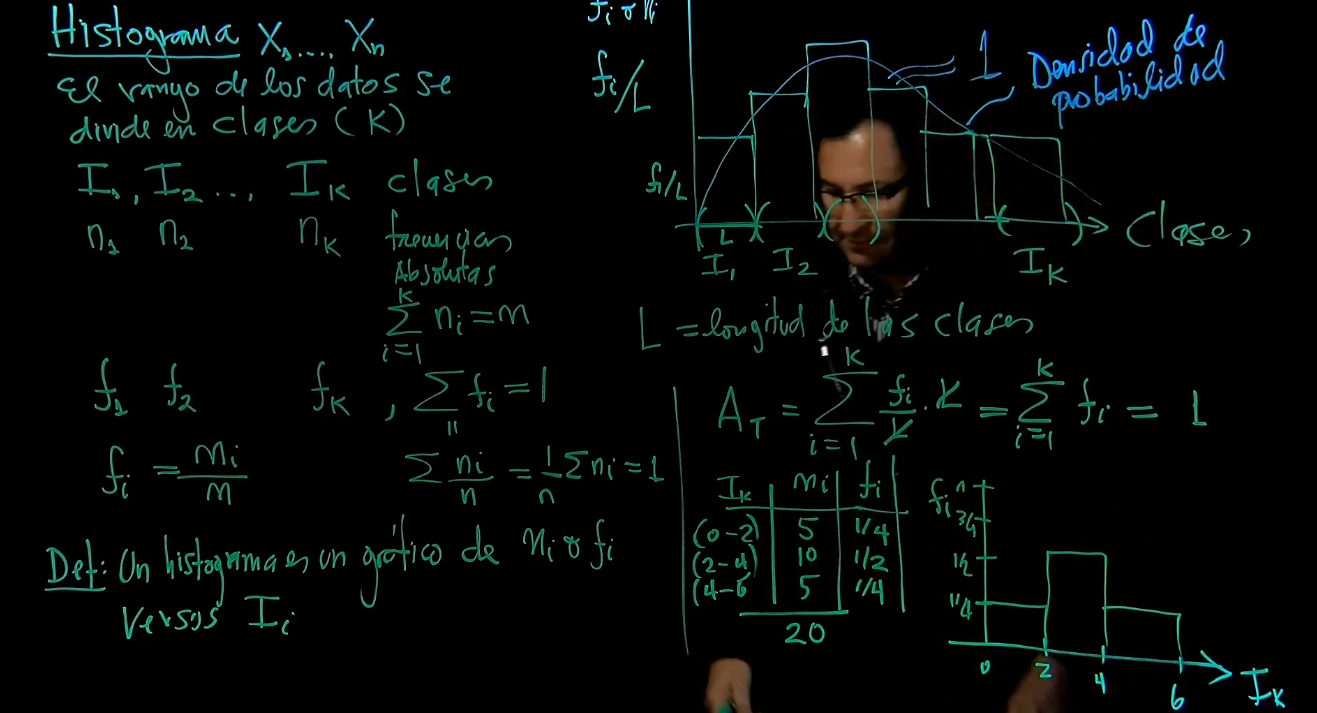 Histograma X₁,..., Xₙ
El rango de los datos se
divide en clases (K)
I₁, I₂ ..., I_K clases
n₁ n₂ n_K frecuencias
Absolutas
∑_{i=1}^{K} nᵢ = n
f₁ f₂ f_K , ∑ fᵢ = 1
fᵢ = nᵢ/n
∑ nᵢ/n = 1/n ∑ nᵢ = 1
Def: Un histograma es un gráfico de nᵢ o fᵢ
versos Iᵢ
fᵢ o nᵢ
fᵢ/L
1
Densidad de
probabilidad
fᵢ/L
L
Clases
I₁ I₂ I_K
L = longitud de las clases
A_T = ∑_{i=1}^{K} fᵢ/L . L = ∑_{i=1}^{K} fᵢ = 1
I_K nᵢ fᵢ
(0-2) 5 1/4
(2-4) 10 1/2
(4-6 5 1/4
20
fᵢ 1
3/4
1/2
1/4
0 2 4 6 I_K